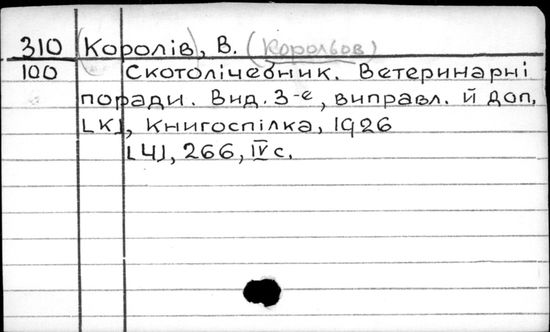 310 (Королів), В. (Корольов)
100 Скотолічебник. Ветеринарні
поради. Вид. 3-е, виправл. й доп.
[К], Книгоспілка, 1926
[4], 266, IV с.